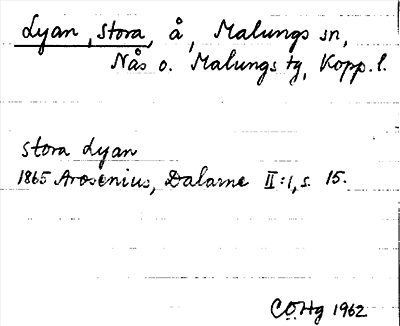 Lyan, stora, å, Malungs sn,
Nås o. Malungs tg, Kopp. l.
stora Lyan
1865 Arosenius, Dalarne II:1, s. 15.
CÖHg 1962